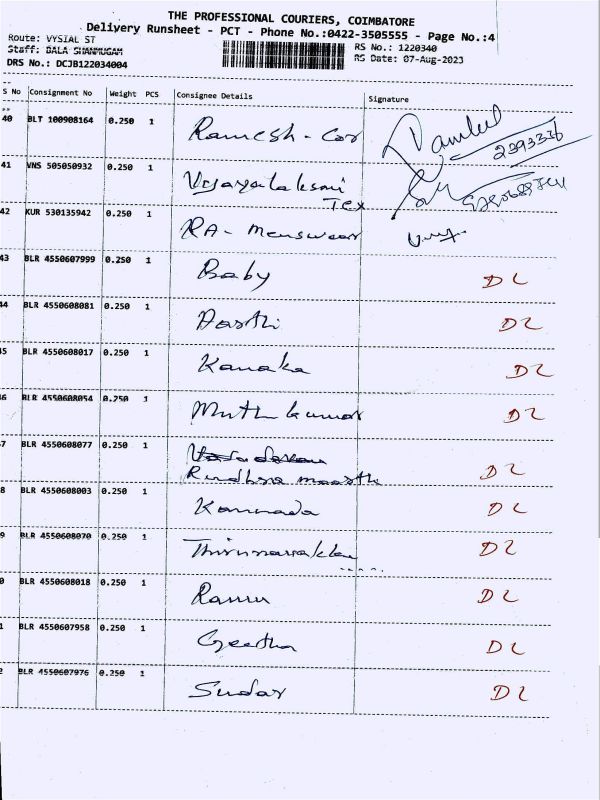 THE PROFESSIONAL COURIERS, COIMBATORE
Delivery Runsheet - PCT - Phone No.:0422-3505555 - Page No.:4
Route: VYSIAL ST
RS No.: 1220340
Staff: BALA SHANMUGAM
RS Date: 07-Aug-2023
DRS No.: DCJB122034004
S No Consignment No Weight PCS Consignee Details Signature
40 BLT 100908164 0.250 1 Ramesh - Car
2393336
41 VNS 505050932 0.250 1 Vijayalaksmi
Tex
42 KUR 530135942 0.250 1 RA - Menswear
43 BLR 4550607999 0.250 1 Baby DL
44 BLR 4550608081 0.250 1 Aarthi DL
5 BLR 4550608017 0.250 1 Kanaka DL
6 BLR 4550608054 0.250 1 Muthukumar DL
7 BLR 4550608077 0.250 1
Rudhra moorthi DL
8 BLR 4550608003 0.250 1 Kannada DL
9 BLR 4550608070 0.250 1 DL
0 BLR 4550608018 0.250 1 Rammu DL
1 BLR 4550607958 0.250 1 Geetha DL
2 BLR 4550607976 0.250 1 Sudar DL